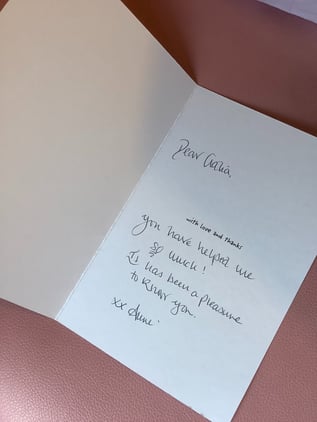 Dear Galia,
with love and thanks
you have helped me
so much!
It has been a pleasure
to know you.
xx Anne.